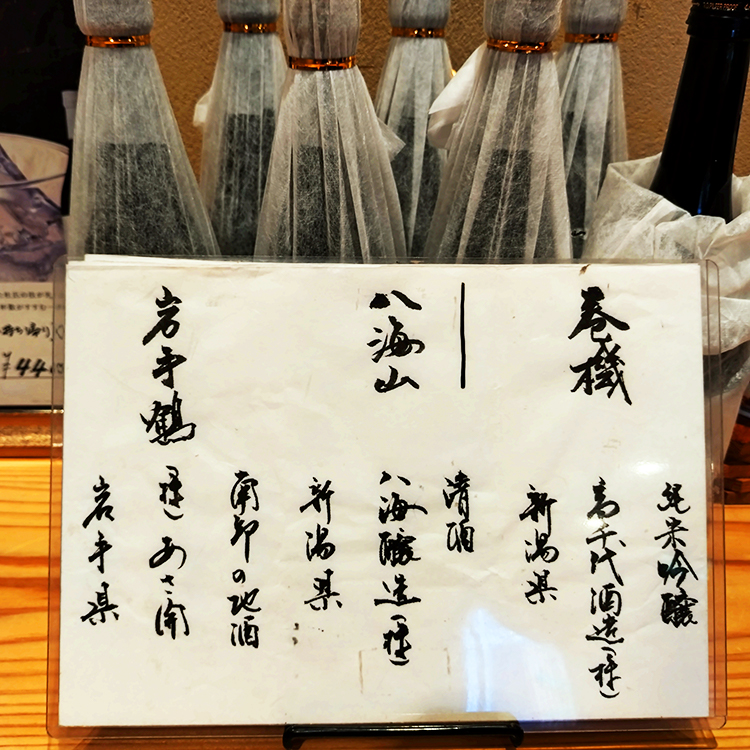 純米吟醸
巻機
高千代酒造(株)
新潟県
清酒
八海山
八海醸造(株)
新潟県
南部の地酒
岩手鶴
(株)あさ開
岩手県